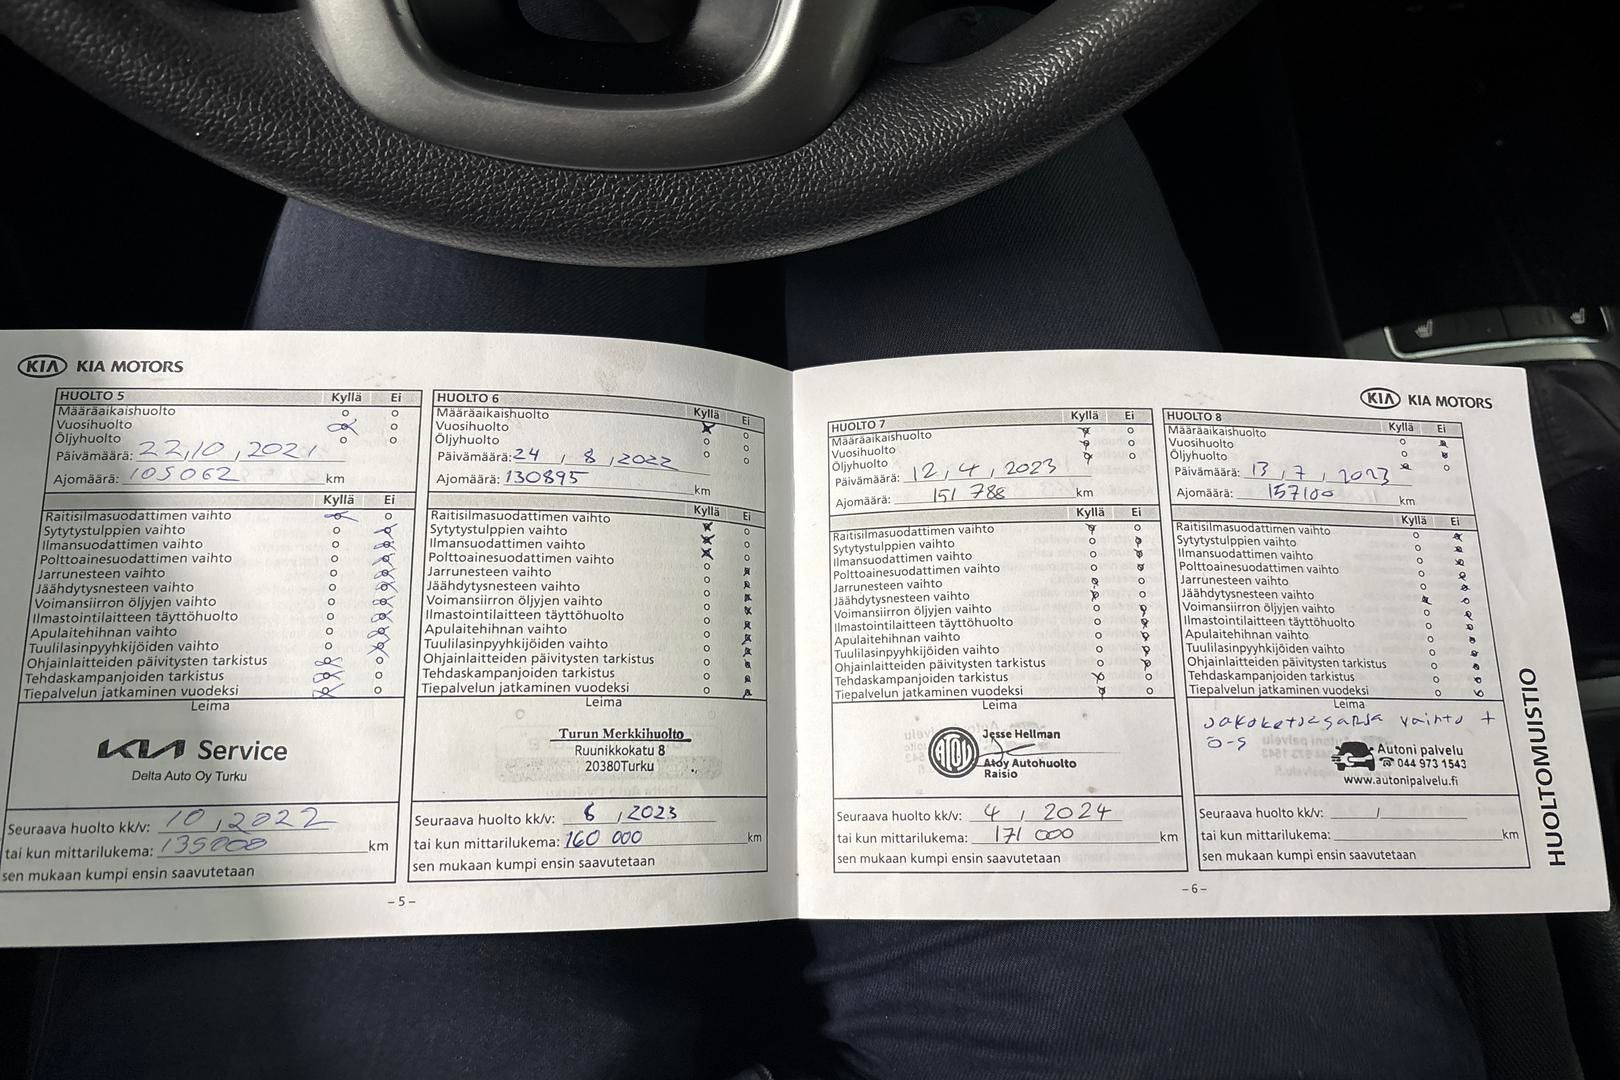 KIA KIA MOTORS
HUOLTO 5 Kyllä Ei
Määräaikaishuolto
Vuosihuolto
Öljyhuolto
Päivämäärä: 22,10,2021
Ajomäärä: 105062 km
Kyllä Ei
Raitisilmasuodattimen vaihto
Sytytystulppien vaihto
Ilmansuodattimen vaihto
Polttoainesuodattimen vaihto
Jarrunesteen vaihto
Jäähdytysnesteen vaihto
Voimansiirron öljyjen vaihto
Ilmastointilaitteen täyttöhuolto
Apulaitehihnan vaihto
Tuulilasinpyyhkijöiden vaihto
Ohjainlaitteiden päivitysten tarkistus
Tehdaskampanjoiden tarkistus
Tiepalvelun jatkaminen vuodeksi
Leima
KIA Service
Delta Auto Oy Turku
Seuraava huolto kk/v: 10,2022
tai kun mittarilukema: 135000 km
sen mukaan kumpi ensin saavutetaan
HUOLTO 6 Kyllä Ei
Määräaikaishuolto
Vuosihuolto
Öljyhuolto
Päivämäärä: 24,8,2022
Ajomäärä: 130895 km
Kyllä Ei
Raitisilmasuodattimen vaihto
Sytytystulppien vaihto
Ilmansuodattimen vaihto
Polttoainesuodattimen vaihto
Jarrunesteen vaihto
Jäähdytysnesteen vaihto
Voimansiirron öljyjen vaihto
Ilmastointilaitteen täyttöhuolto
Apulaitehihnan vaihto
Tuulilasinpyyhkijöiden vaihto
Ohjainlaitteiden päivitysten tarkistus
Tehdaskampanjoiden tarkistus
Tiepalvelun jatkaminen vuodeksi
Leima
Turun Merkkihuolto
Ruunikkokatu 8
20380Turku
Seuraava huolto kk/v: 6,2023
tai kun mittarilukema: 160 000 km
sen mukaan kumpi ensin saavutetaan
- 5 -
KIA KIA MOTORS
HUOLTO 7 Kyllä Ei
Määräaikaishuolto
Vuosihuolto
Öljyhuolto
Päivämäärä: 12,4,2023
Ajomäärä: 151 788 km
Kyllä Ei
Raitisilmasuodattimen vaihto
Sytytystulppien vaihto
Ilmansuodattimen vaihto
Polttoainesuodattimen vaihto
Jarrunesteen vaihto
Jäähdytysnesteen vaihto
Voimansiirron öljyjen vaihto
Ilmastointilaitteen täyttöhuolto
Apulaitehihnan vaihto
Tuulilasinpyyhkijöiden vaihto
Ohjainlaitteiden päivitysten tarkistus
Tehdaskampanjoiden tarkistus
Tiepalvelun jatkaminen vuodeksi
Leima
ATOY
Jesse Hellman
Atoy Autohuolto
Raisio
Seuraava huolto kk/v: 4,2024
tai kun mittarilukema: 171 000 km
sen mukaan kumpi ensin saavutetaan
HUOLTO 8 Kyllä Ei
Määräaikaishuolto
Vuosihuolto
Öljyhuolto
Päivämäärä: 13,7,2023
Ajomäärä: 157100 km
Kyllä Ei
Raitisilmasuodattimen vaihto
Sytytystulppien vaihto
Ilmansuodattimen vaihto
Polttoainesuodattimen vaihto
Jarrunesteen vaihto
Jäähdytysnesteen vaihto
Voimansiirron öljyjen vaihto
Ilmastointilaitteen täyttöhuolto
Apulaitehihnan vaihto
Tuulilasinpyyhkijöiden vaihto
Ohjainlaitteiden päivitysten tarkistus
Tehdaskampanjoiden tarkistus
Tiepalvelun jatkaminen vuodeksi
Leima
vaihto +
ö-s
Autoni palvelu
044 973 1543
www.autonipalvelu.fi
Seuraava huolto kk/v: /
tai kun mittarilukema: km
sen mukaan kumpi ensin saavutetaan
- 6 -
HUOLTOMUISTIO